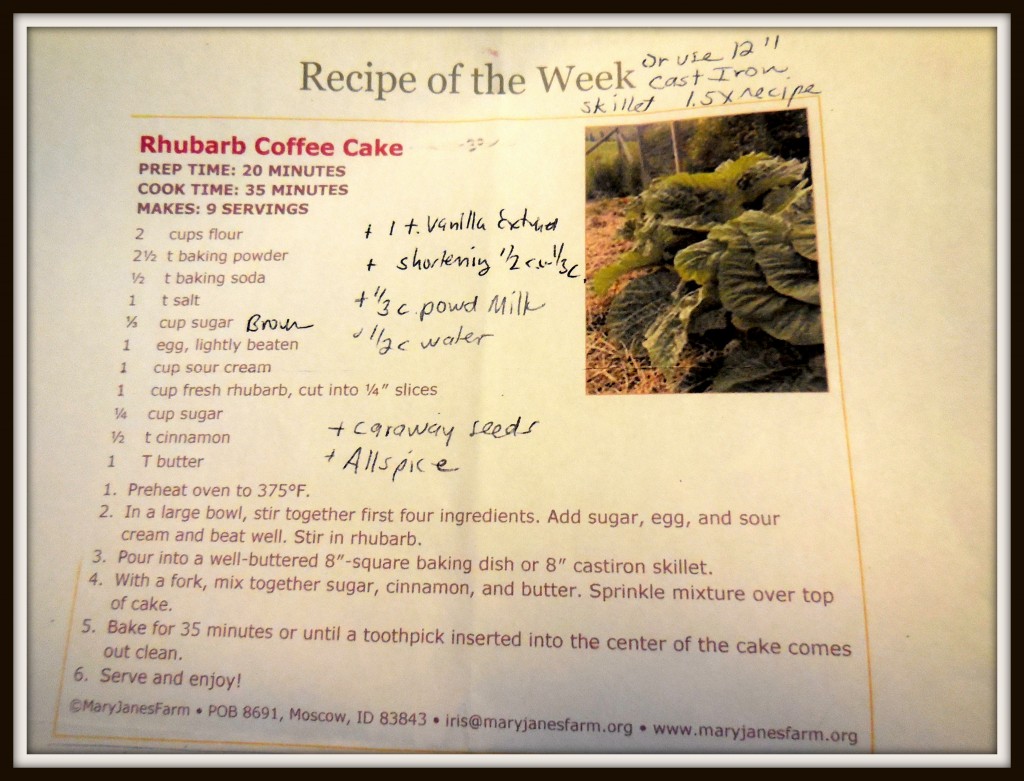 Recipe of the Week
or use 12"
cast Iron
skillet 1.5x recipe
Rhubarb Coffee Cake
PREP TIME: 20 MINUTES
COOK TIME: 35 MINUTES
MAKES: 9 SERVINGS
2 cups flour
+ 1 t. Vanilla Extract
2½ t baking powder
+ shortening 1/2 c 1/3 c.
½ t baking soda
1 t salt
+ 1/3 c. powd Milk
⅓ cup sugar Brown
1/2 c water
1 egg, lightly beaten
1 cup sour cream
1 cup fresh rhubarb, cut into ¼" slices
¼ cup sugar
+ caraway seeds
½ t cinnamon
+ Allspice
1 T butter
1. Preheat oven to 375°F.
2. In a large bowl, stir together first four ingredients. Add sugar, egg, and sour
cream and beat well. Stir in rhubarb.
3. Pour into a well-buttered 8"-square baking dish or 8" castiron skillet.
4. With a fork, mix together sugar, cinnamon, and butter. Sprinkle mixture over top
of cake.
5. Bake for 35 minutes or until a toothpick inserted into the center of the cake comes
out clean.
6. Serve and enjoy!
©MaryJanesFarm • POB 8691, Moscow, ID 83843 • iris@maryjanesfarm.org • www.maryjanesfarm.org